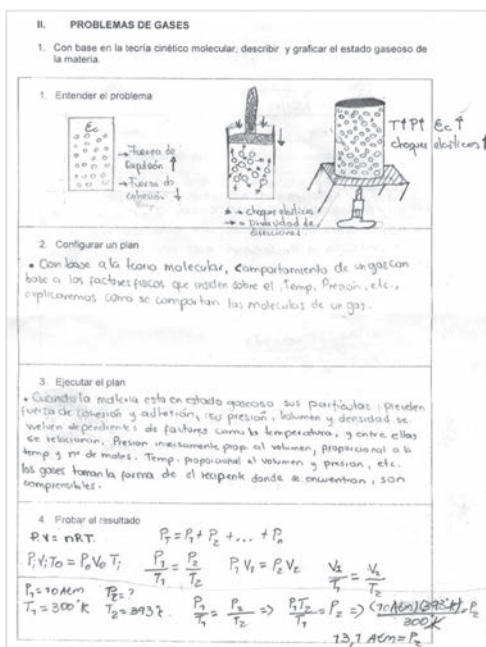 II. PROBLEMAS DE GASES
1. Con base en la teoría cinético molecular, describir y graficar el estado gaseoso de
la materia.
1. Entender el problema
Ec
→ Fuerza de
Expulsión ↑
→ Fuerza de
cohesión ↓
* → choques elásticos
→ = Diversidad de
direcciones
T↑P↑ Ec ↑
choques elasticos ↑
2. Configurar un plan
• Con base a la teoria molecular, comportamiento de un gas con
base a los factores fisicos que inciden sobre el, Temp, Presion, etc.,
explicaremos como se comportan las moleculas de un gas.
3. Ejecutar el plan
• Cuando la materia esta en estado gaseoso sus particulas pierden
fuerza de cohesión y adhesión, su presión, volumen y densidad se
vuelven dependientes de factores como la temperatura, y entre ellas
se relacionan. Presion inversamente prop. al volumen, proporcional a la
temp y nº de moles. Temp. proporcional al volumen y presion, etc.
los gases toman la forma de el recipente donde se encuentran, son
compresibles.
4. Probar el resultado
P.V = nRT. P_T = P_1 + P_2 + ... + P_n
P_i V_i T_o = P_o V_o T_i P_1/T_1 = P_2/T_2 P_1 V_1 = P_2 V_2 V_1/T_1 = V_2/T_2
P_1 = 10 Atm P_2 = ?
T_1 = 300°K T_2 = 393°K P_1/T_1 = P_2/T_2 => P_1T_2/T_1 = P_2 => (10 Atm)(393°K)/300°K = P_2
13,1 Atm = P_2